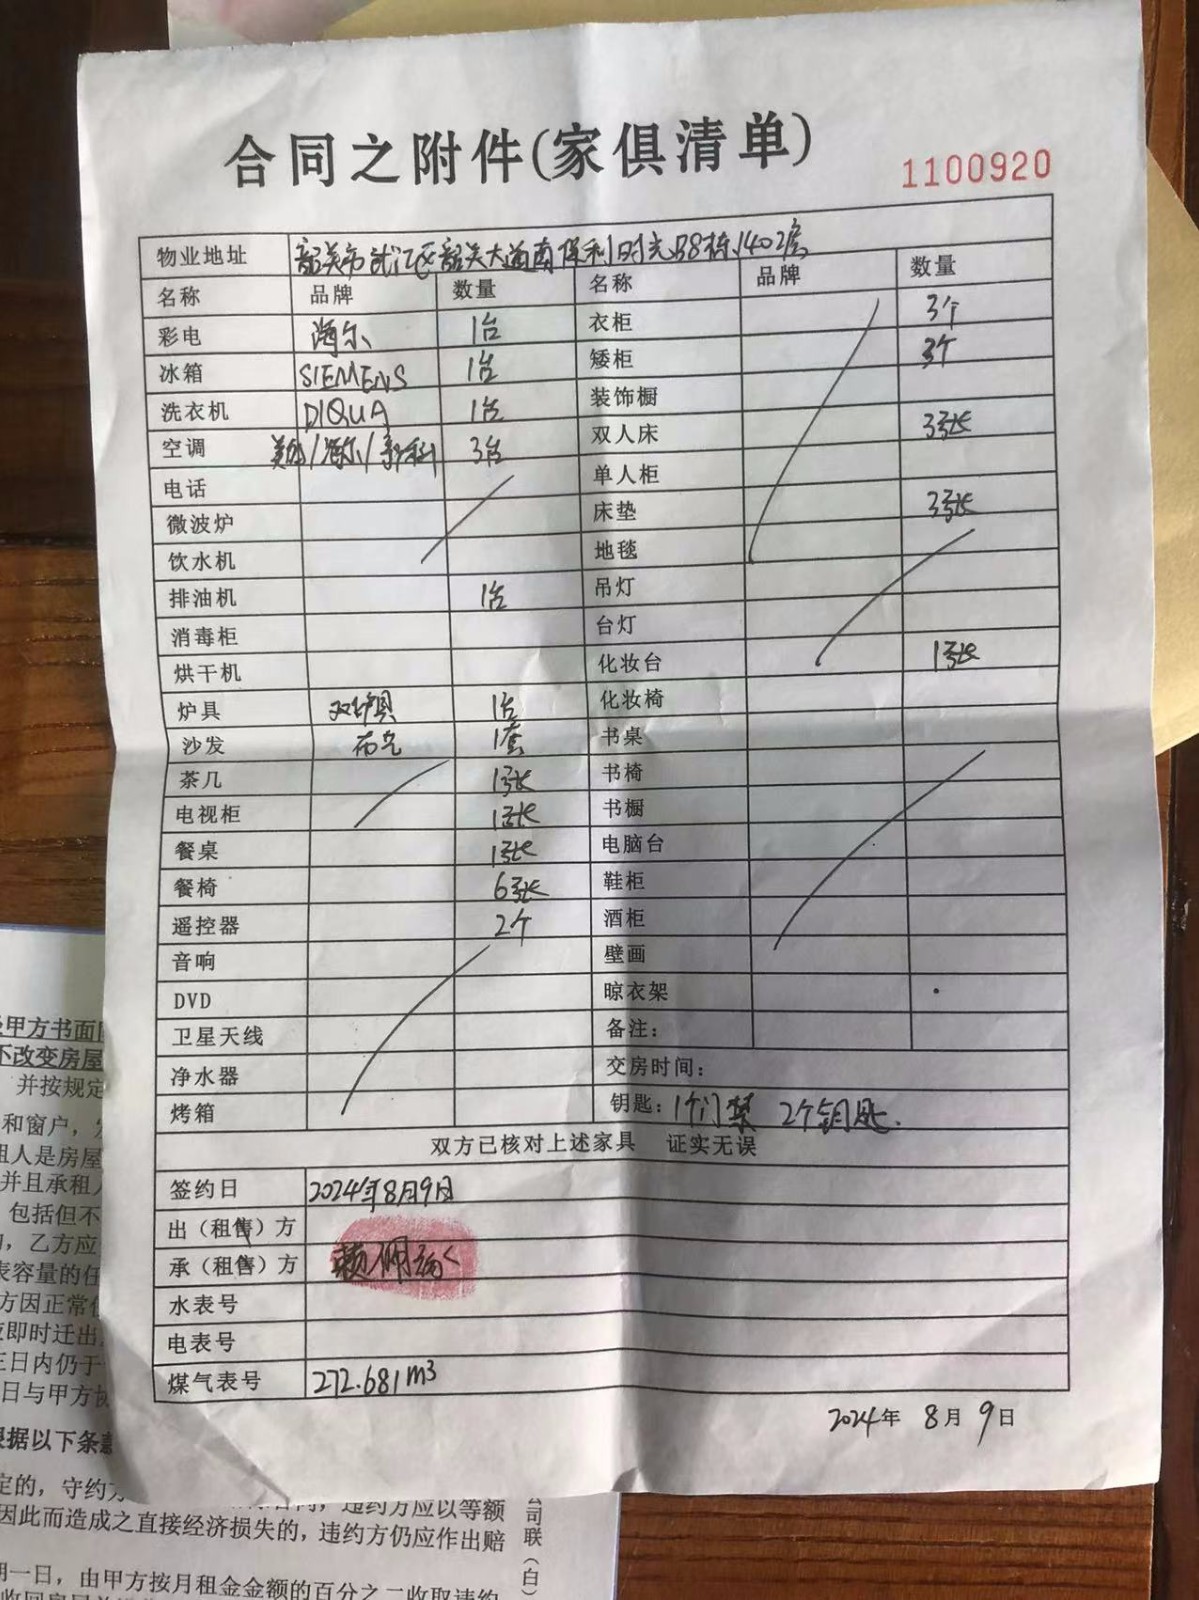 合同之附件(家俱清单)
1100920
物业地址 韶关市武江区韶关大道南保利时光8栋1402房
名称 品牌 数量 名称 品牌 数量
彩电 海尔 1台 衣柜 3个
冰箱 SIEMENS 1台 矮柜 3个
洗衣机 DIQUA 1台 装饰橱
空调 美的/海尔/新科 3台 双人床 3张
电话 单人柜
微波炉 床垫 3张
饮水机 地毯
排油机 1台 吊灯
消毒柜 台灯
烘干机 化妆台 1张
炉具 双炉具 1台 化妆椅
沙发 布艺 1套 书桌
茶几 1张 书椅
电视柜 1张 书橱
餐桌 1张 电脑台
餐椅 6张 鞋柜
遥控器 2个 酒柜
音响 壁画
DVD 晾衣架
卫星天线 备注：
净水器 交房时间：
烤箱 钥匙：1个门禁 2个钥匙.
双方已核对上述家具 证实无误
签约日 2024年8月9日
出（租售）方
承（租售）方 赖
水表号
电表号
煤气表号 272.681m³
2024年 8月 9日
甲方书面
不改变房屋
并按规定
和窗户，
租人是房屋
并且承租人
包括但不
，乙方应
表容量的任
方因正常
应即时迁出
三日内仍于
日与甲方协
根据以下条款
定的，守约方 违约方应以等额
因此而造成之直接经济损失的，违约方仍应作出赔
期一日，由甲方按月租金金额的百分之二收取违约
公司联（白）